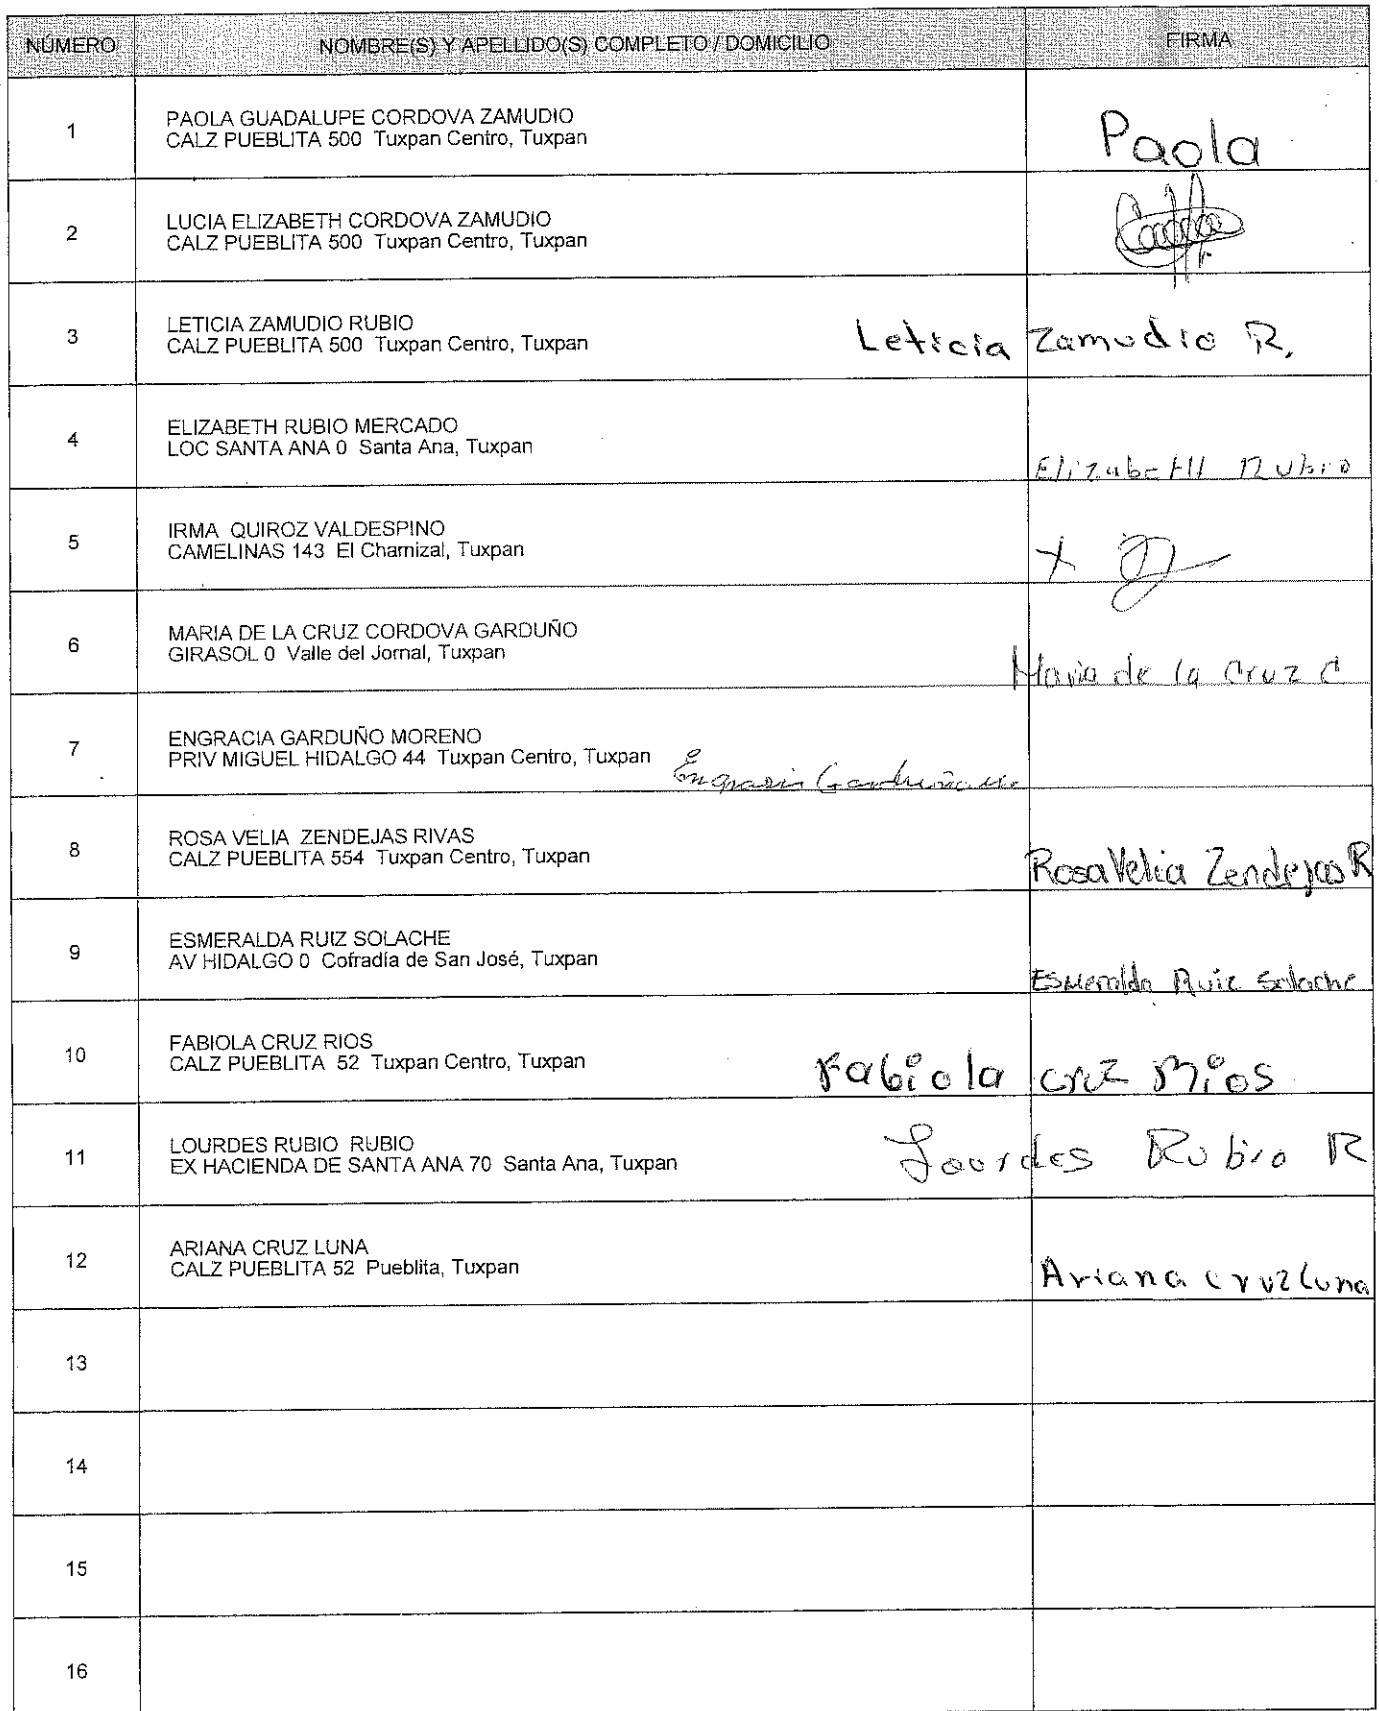 NÚMERO NOMBRE(S) Y APELLIDO(S) COMPLETO / DOMICILIO FIRMA
1 PAOLA GUADALUPE CORDOVA ZAMUDIO
CALZ PUEBLITA 500 Tuxpan Centro, Tuxpan
Paola
2 LUCIA ELIZABETH CORDOVA ZAMUDIO
CALZ PUEBLITA 500 Tuxpan Centro, Tuxpan
3 LETICIA ZAMUDIO RUBIO
CALZ PUEBLITA 500 Tuxpan Centro, Tuxpan
Leticia Zamudio R.
4 ELIZABETH RUBIO MERCADO
LOC SANTA ANA 0 Santa Ana, Tuxpan
Elizabeth Rubio
5 IRMA QUIROZ VALDESPINO
CAMELINAS 143 El Chamizal, Tuxpan
X
6 MARIA DE LA CRUZ CORDOVA GARDUÑO
GIRASOL 0 Valle del Jornal, Tuxpan
Maria de la Cruz C
7 ENGRACIA GARDUÑO MORENO
PRIV MIGUEL HIDALGO 44 Tuxpan Centro, Tuxpan
8 ROSA VELIA ZENDEJAS RIVAS
CALZ PUEBLITA 554 Tuxpan Centro, Tuxpan
Rosa Velia Zendejas R
9 ESMERALDA RUIZ SOLACHE
AV HIDALGO 0 Cofradía de San José, Tuxpan
Esmeralda Ruiz Solache
10 FABIOLA CRUZ RIOS
CALZ PUEBLITA 52 Tuxpan Centro, Tuxpan
Fabiola cruz Rios
11 LOURDES RUBIO RUBIO
EX HACIENDA DE SANTA ANA 70 Santa Ana, Tuxpan
Lourdes Rubio R
12 ARIANA CRUZ LUNA
CALZ PUEBLITA 52 Pueblita, Tuxpan
Ariana cruz Luna
13
14
15
16